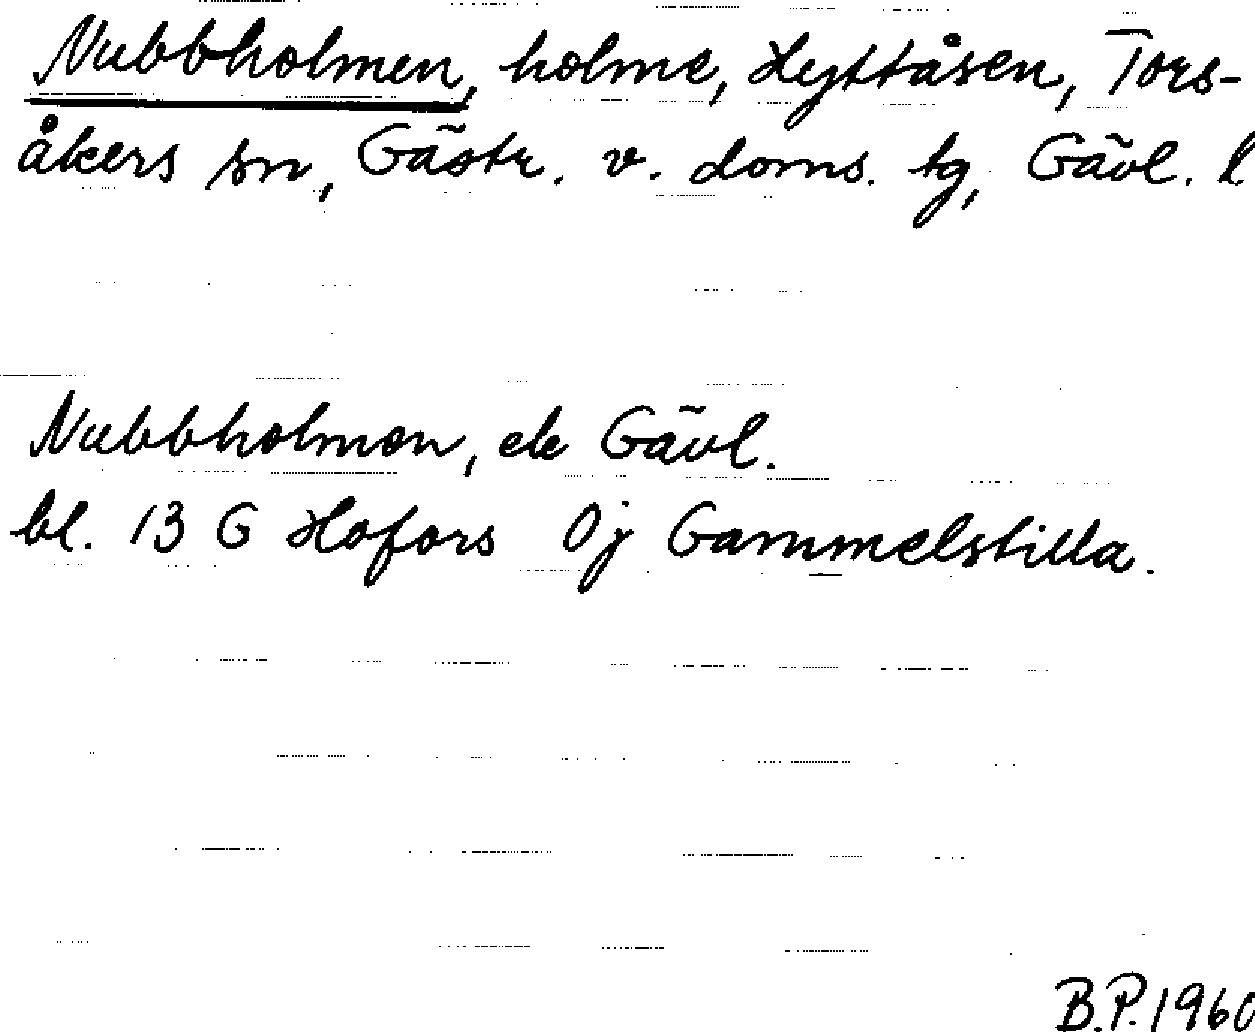 Nubbholmen, holme, Hyttåsen, Tors-
åkers sn, Gästr. v. doms. tg, Gävl. l
Nubbholmen, ek Gävl.
bl. 13 G Hofors 0j Gammelstilla.
B.P. 1960